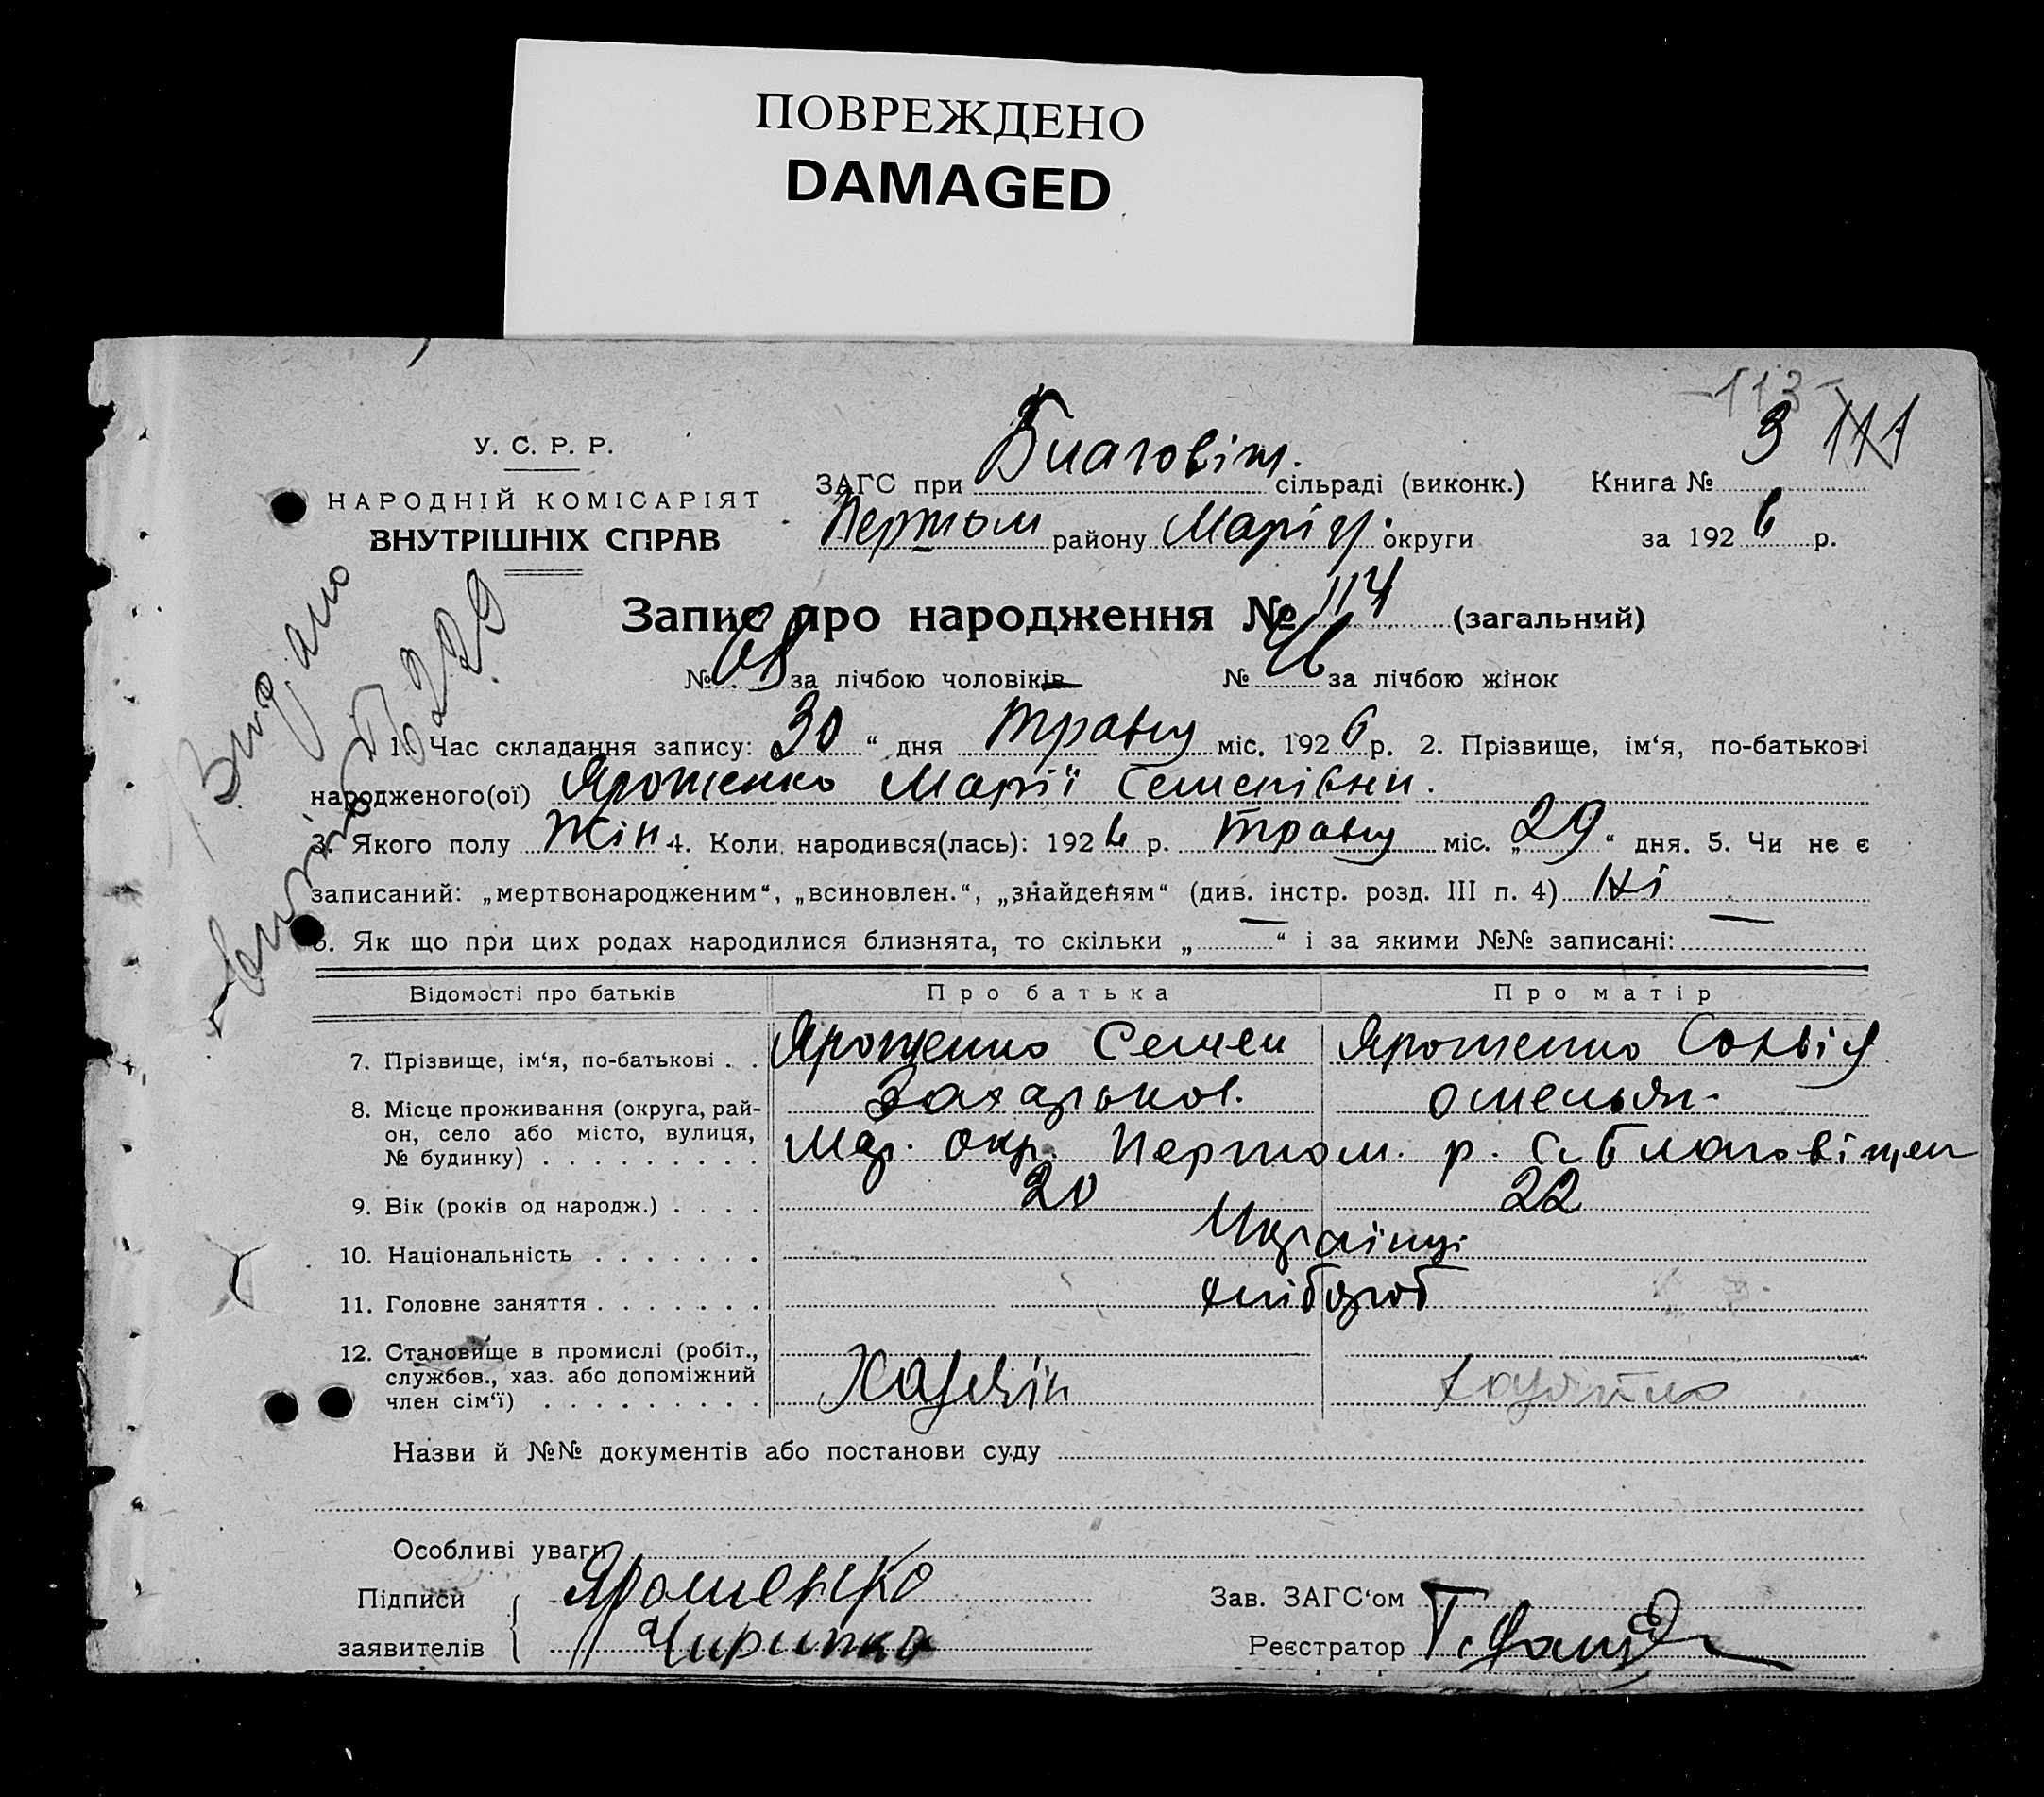 ПОВРЕЖДЕНО
DAMAGED
113
У. С. Р. Р.
НАРОДНІЙ КОМІСАРІЯТ
ВНУТРІШНІХ СПРАВ
ЗАГС при Благовіщ. сільраді (виконк.) Книга № 3 111
Першом району Маріуп. округи за 1926 р.
Запис про народження № 114 (загальний)
№ 68 за лічбою чоловіків № 46 за лічбою жінок
Видано
1. Час складання запису: „30“ дня травня міс. 1926 р. 2. Прізвище, ім‘я, по-батькові
народженого(ої) Ярошенко Марії Семенівни.
3. Якого полу Жін 4. Коли народився(лась): 1926 р. травня міс. „29“ дня. 5. Чи не є
записаний: „мертвонародженим“, „всиновлен.“, „знайденям“ (див. інстр. розд. III п. 4) Ні
6. Як що при цих родах народилися близнята, то скільки „—“ і за якими №№ записані: —
Відомості про батьків Про батька Про матір
7. Прізвище, ім‘я, по-батькові . . Ярошенко Семен Захарьков. Ярошенко Софвія Омельян.
8. Місце проживання (округа, рай-
он, село або місто, вулиця,
№ будинку) . . . . . . . . . Мар. окр. Першом. р. с. Благовіщен
9. Вік (років од народж.) . . . . 20 22
10. Національність . . . . . . . Українці
11. Головне заняття . . . . . . . хлібороб
12. Становище в промислі (робіт.,
службов., хаз. або допоміжний
член сім‘ї) . . . . . . . . . Хазяїн хазяйка
Назви й №№ документів або постанови суду
Особливі уваги
Підписи Ярошенко Зав. ЗАГС‘ом
заявителів Реєстратор